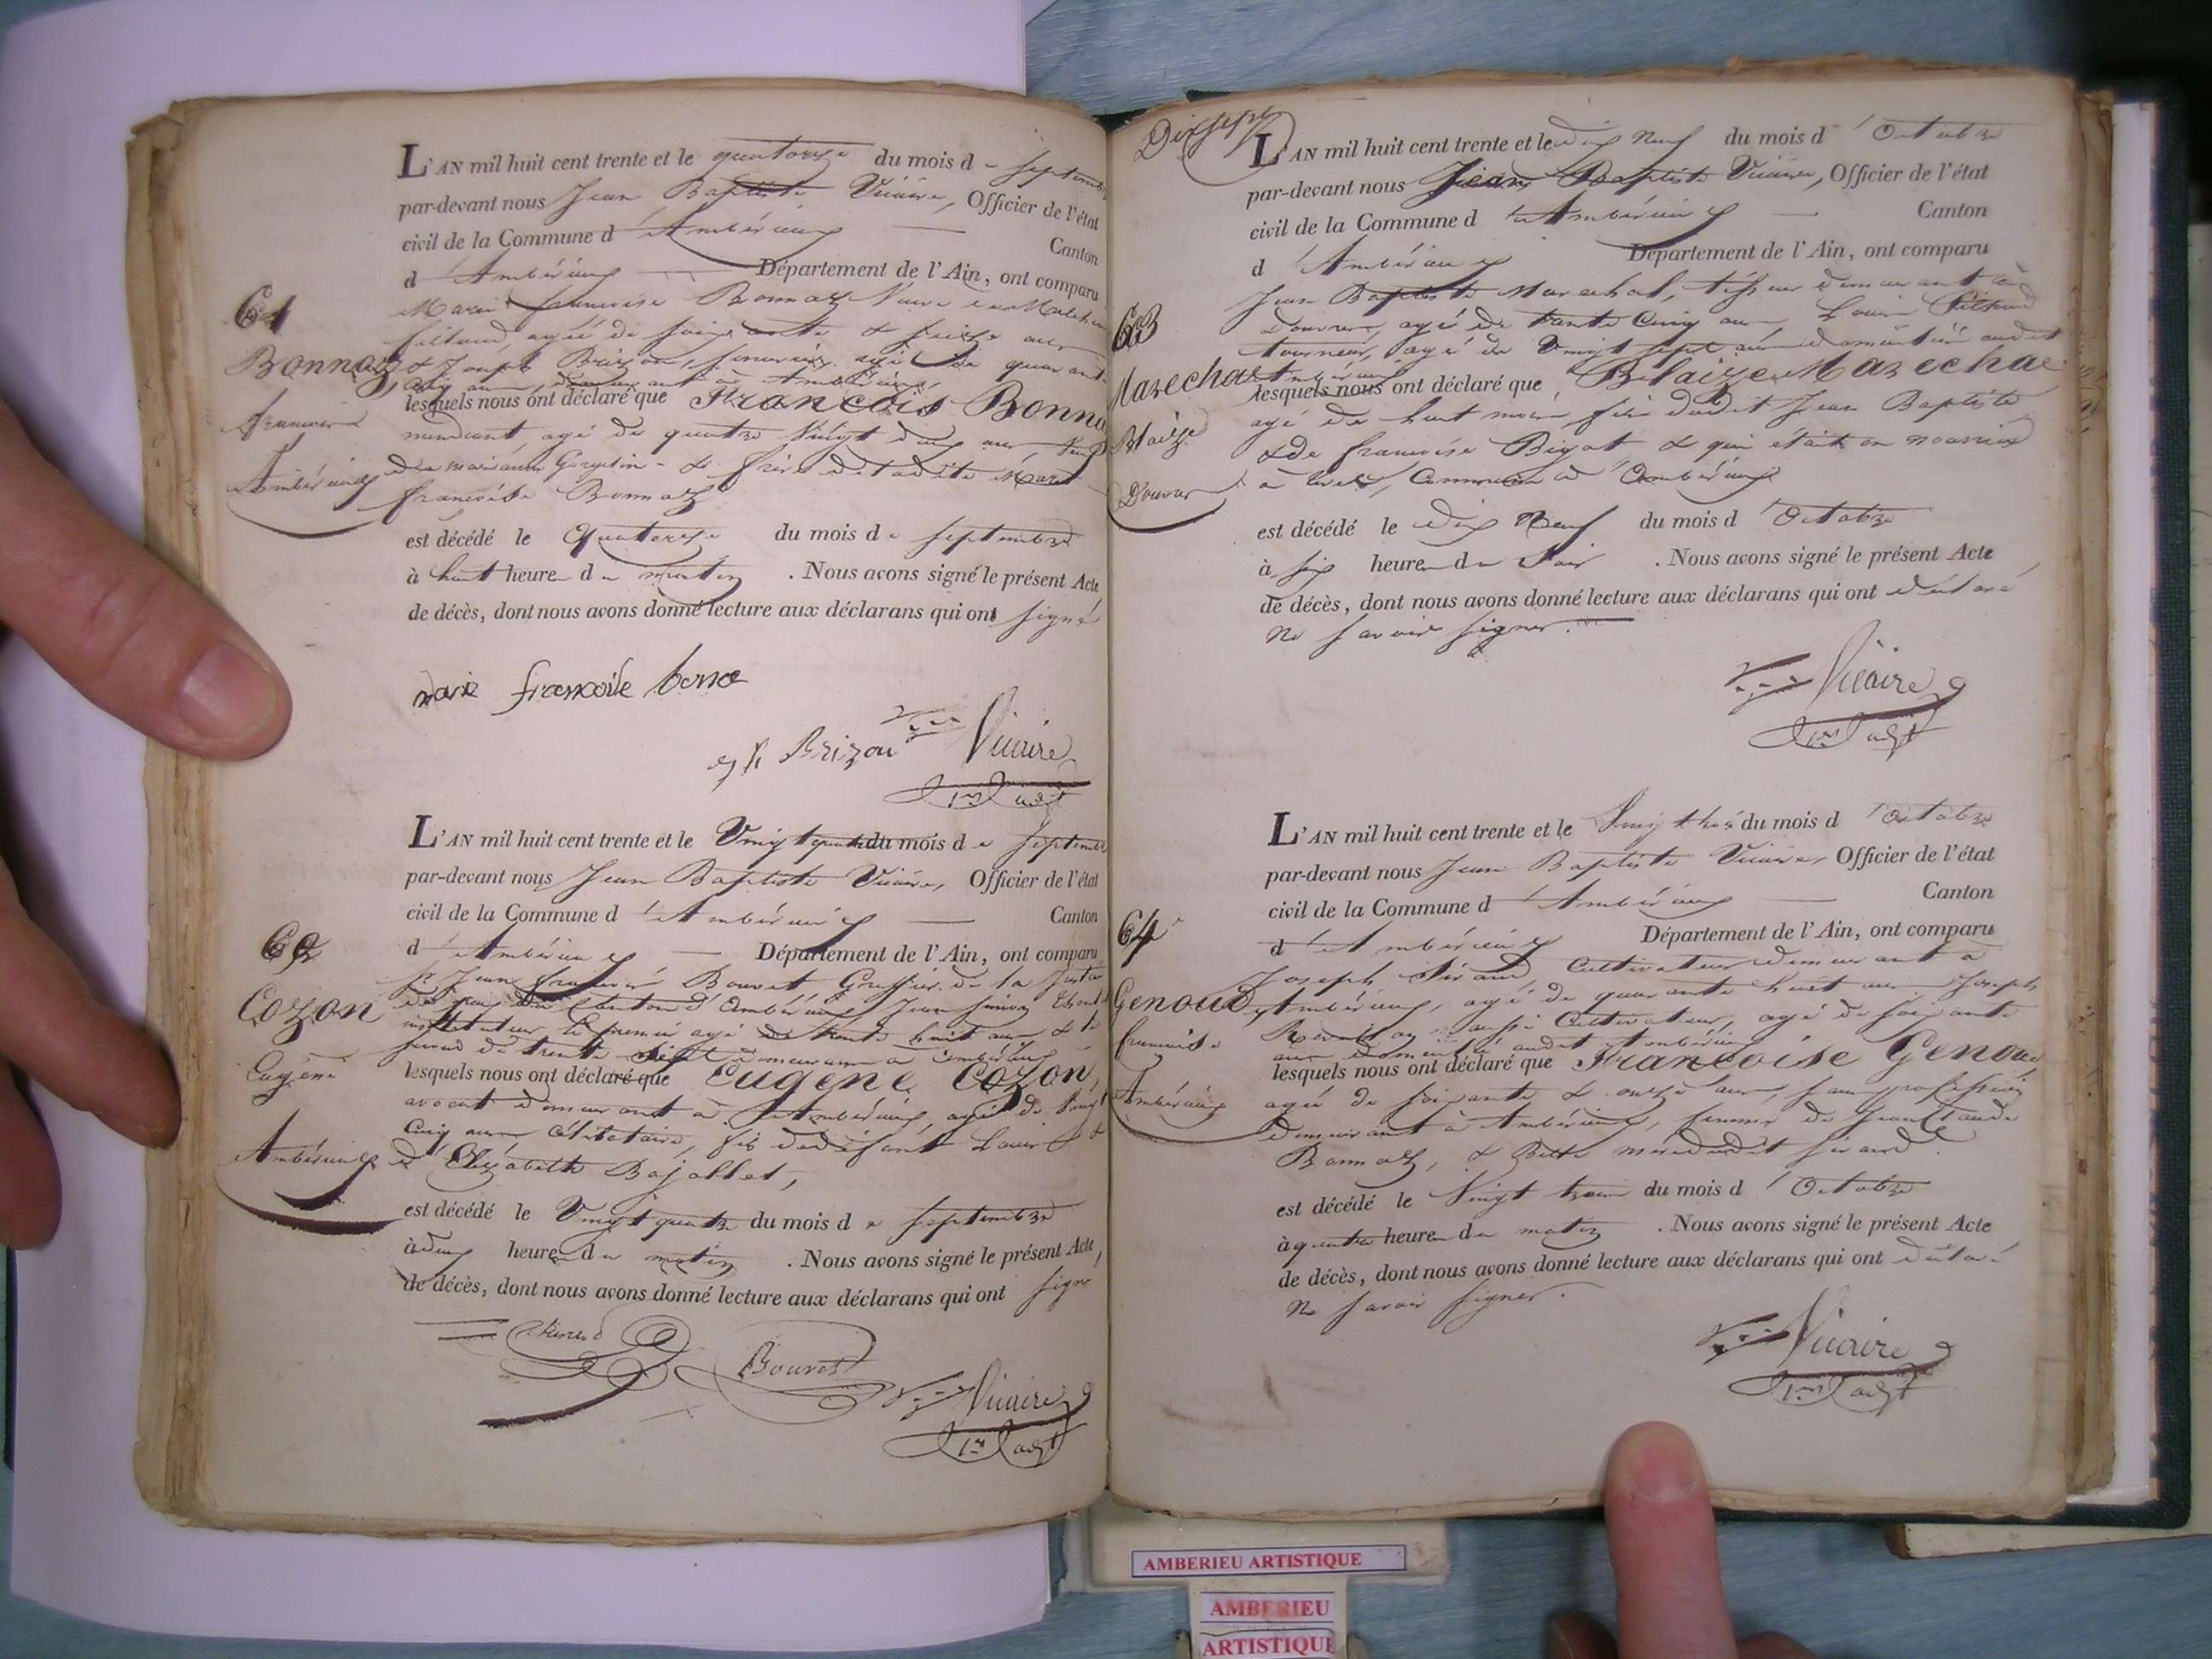 61
Bonnaz
francois
Ambérieux
L'AN mil huit cent trente et le quatorze du mois de Septembre
par-devant nous Jean Baptiste Vicaire, Officier de l'état
civil de la Commune d'Ambérieux Canton
d'Ambérieux Département de l'Ain, ont comparu
Marie francoise Bonnaz Veuve
agée de soixante & seize ans
& Joseph Brizon, agé de quarante
cinq ans, demeurant à Ambérieux,
lesquels nous ont déclaré que Francois Bonna
mendiant, agé de quatre Vingt deux ans Veuf
de & frère de ladite Marie
francoise Bonnaz
est décédé le Quatorze du mois de Septembre
à huit heure du matin . Nous avons signé le présent Acte
de décès, dont nous avons donné lecture aux déclarans qui ont signé
marie francoise bona
Brizon Vicaire
1er adjt
62
Cozon
Eugène
Ambérieux
L'AN mil huit cent trente et le Vingt quatre du mois de Septembre
par-devant nous Jean Baptiste Vicaire, Officier de l'état
civil de la Commune d'Ambérieux Canton
d'Ambérieux Département de l'Ain, ont comparu
Sr Jean francois Bouvet Greffier de la Justice
de paix du Canton d'Ambérieux Jean Simon
instituteur, le premier agé de trente huit ans & le
second de trente sept demeurant à Ambérieux
lesquels nous ont déclaré que Eugène Cozon,
avocat demeurant à Ambérieux, agé de Vingt
Cinq ans célibataire, fils de défunt Louis &
d'Elizabeth Bajollet,
est décédé le Vingt quatre du mois de Septembre
à deux heure du matin . Nous avons signé le présent Acte,
de décès, dont nous avons donné lecture aux déclarans qui ont signé
Bouvet
Vicaire
1er adjt
Dix sept
63
Marechal
Blaize
Douvres
L'AN mil huit cent trente et le dix neuf du mois d'Octobre
par-devant nous Jean Baptiste Vicaire, Officier de l'état
civil de la Commune d'Ambérieux Canton
d'Ambérieux Département de l'Ain, ont comparu
Jean Baptiste Marechal, tisseur demeurant à
Douvres, agé de trente Cinq ans, Louis
tourneur, agé de Vingt sept ans domicilié audit
Ambérieux
lesquels nous ont déclaré que Blaize Marechal
agé de huit mois, fils dudit Jean Baptiste
& de francoise Bigot, & qui était en nourrice
à Commune d'Ambérieux
est décédé le dix Neuf du mois d'Octobre
à six heure du Soir . Nous avons signé le présent Acte
de décès, dont nous avons donné lecture aux déclarans qui ont déclaré
Ne savoir signer.
Vicaire
1er adjt
64
Genoud
francoise
Ambérieux
L'AN mil huit cent trente et le Vingt trois du mois d'Octobre
par-devant nous Jean Baptiste Vicaire, Officier de l'état
civil de la Commune d'Ambérieux Canton
d'Ambérieux Département de l'Ain, ont comparu
Joseph Sirand, Cultivateur demeurant à
Ambérieux, agé de quarante huit ans Joseph
aussi Cultivateur, agé de soixante
ans domicilié audit Ambérieux
lesquels nous ont déclaré que Francoise Genoud
agée de soixante & onze ans, sans profession
demeurant à Ambérieux, femme de Jean Claude
Bonnaz, & Belle mère dudit Sirand
est décédé le Vingt trois du mois d'Octobre
à quatre heure du matin . Nous avons signé le présent Acte
de décès, dont nous avons donné lecture aux déclarans qui ont déclaré
Ne savoir signer.
Vicaire
1er adjt
AMBERIEU ARTISTIQUE
AMBERIEU
ARTISTIQUE